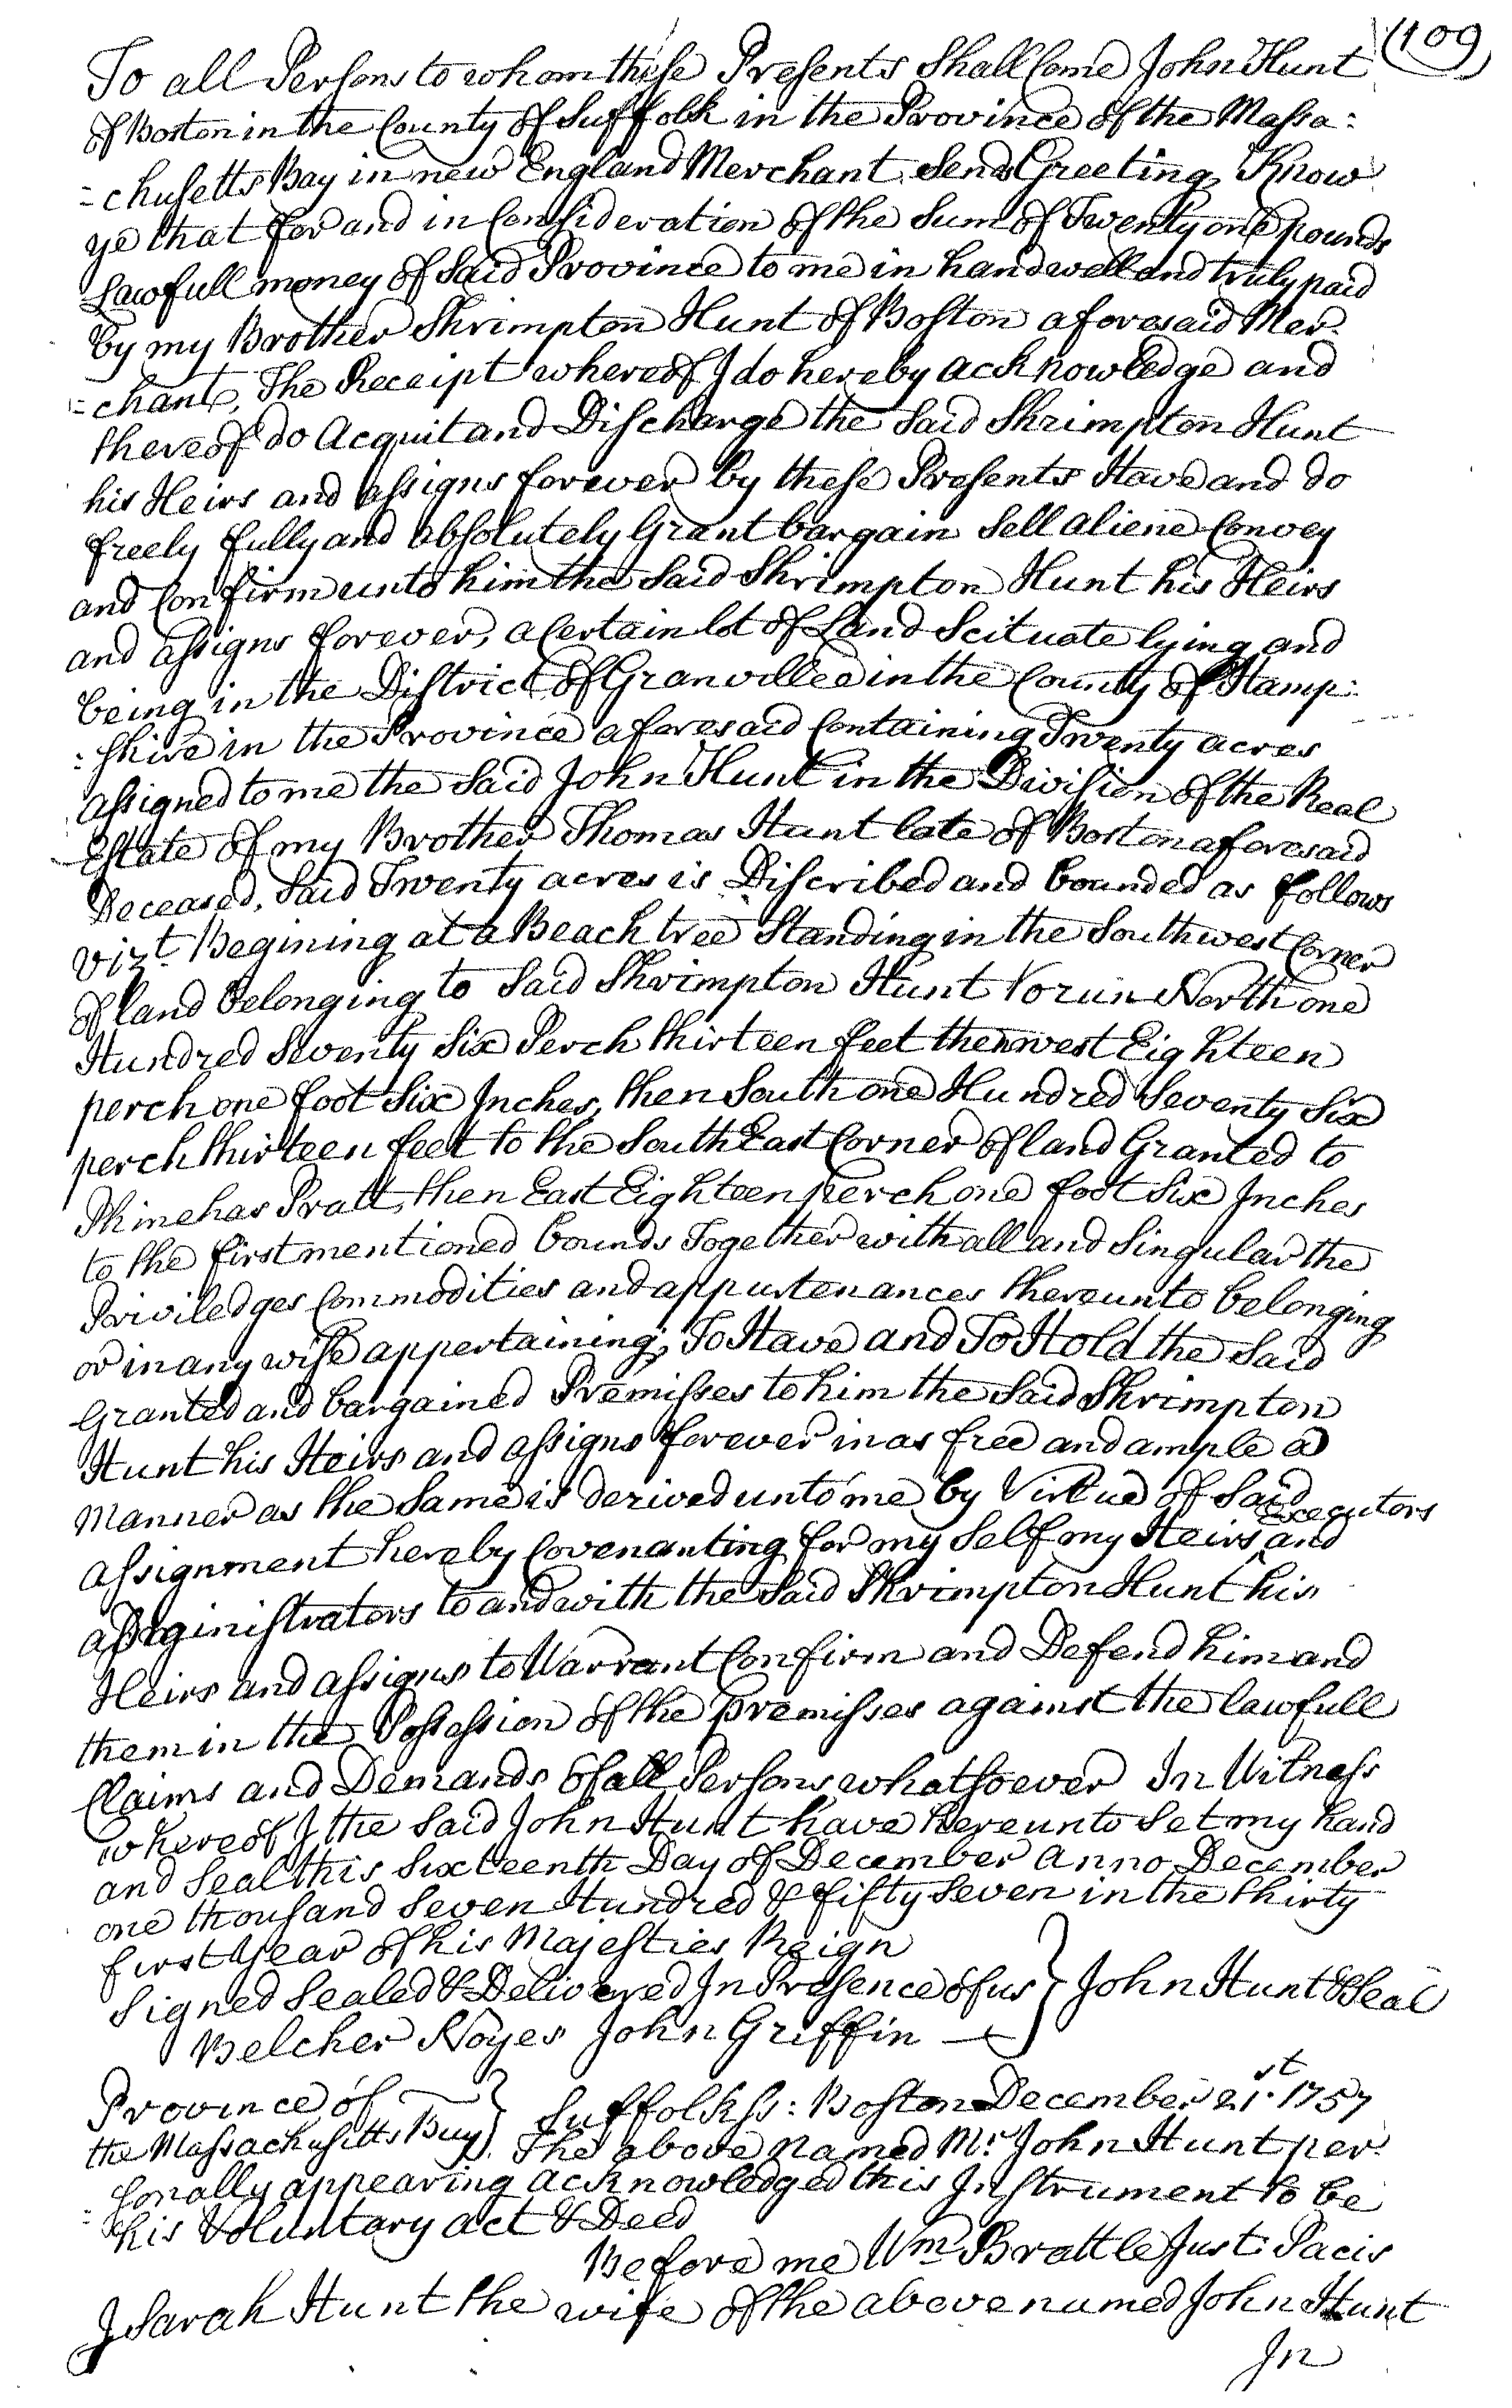 (109)
To all Persons to whom these Presents Shall Come John Hunt
of Boston in the County of Suffolk in the Province of the Massa=
=chusetts Bay in new England Merchant Sends Greeting, Know
ye that for and in Consideration of the Sum of Twenty one pounds
Lawfull money of Said Province to me in hand well and truly paid
by my Brother Shrimpton Hunt of Boston aforesaid Mer-
=chant, The Receipt whereof I do hereby acknowledge and
thereof do Acquit and Discharge the Said Shrimpton Hunt
his Heirs and assigns forever by these Presents Have and do
freely fully and absolutely Grant bargain Sell aliene Convey
and Confirm unto him the Said Shrimpton Hunt his Heirs
and assigns forever, a Certain lot of Land Scituate lying and
being in the District of Granvillee in the County of Hamp=
=shire in the Province aforesaid Containing Twenty acres
assigned to me the Said John Hunt in the Division of the Real
Estate of my Brother Thomas Hunt late of Boston aforesaid
Deceased, Said Twenty acres is Discribed and bounded as follows
vizt. Begining at a Beach tree Standing in the Southwest Corner
of land belonging to Said Shrimpton Hunt to run North one
Hundred Seventy Six Perch thirteen feet then west Eighteen
perch one foot Six Inches, then South one Hundred Seventy Six
perch thirteen feet to the South East Corner of land Granted to
Phinehas Pratt, then East Eighteen perch one foot Six Inches
to the first mentioned bounds Together with all and Singular the
Priviledges Commodities and appurtenances thereunto belonging
or in any wise appertaining; To Have and To Hold the Said
Granted and bargained Premisses to him the Said Shrimpton
Hunt his Heirs and assigns forever in as free and ample a
Manner as the Same is derived unto me by Virtue of Said
assignment hereby Covenanting for my Self my Heirs Executors and
administrators to and with the Said Shrimpton Hunt his
Heirs and assigns to Warrant Confirm and Defend him and
them in the Possession of the premisses against the lawfull
Claims and Demands of all Persons whatsoever In Witness
whereof I the Said John Hunt have hereunto Set my hand
and Seal this Sixteenth Day of December Anno December
one thousand Seven Hundred & fifty Seven in the thirty
first Year of his Majesties Reign
Signed Sealed & Delivered In Presence of us } John Hunt & Seal
Belcher Noyes John Griffin
Province of
the Massachusitts Bay } Suffolk ss: Boston December 21st. 1757
The above named Mr. John Hunt per=
=sonally appearing acknowledged this Instrument to be
his Voluntary act & Deed
Before me Wm Brattle Just: Pacis
I Sarah Hunt the wife of the above named John Hunt
In